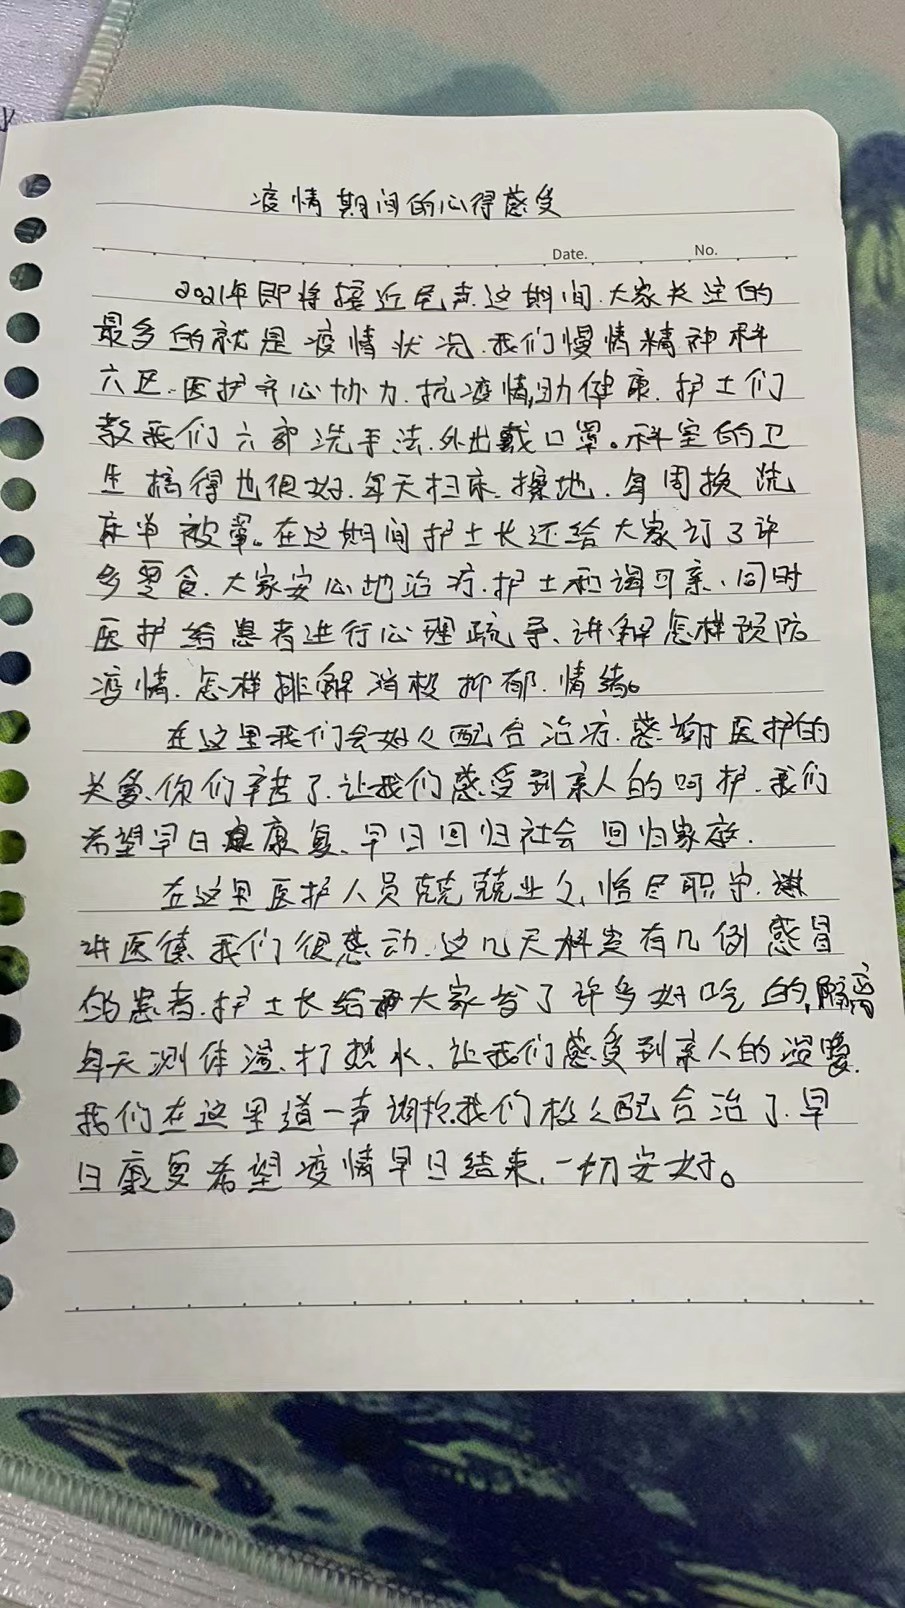 疫情期间的心得感受
Date.
No.
2021年即将接近尾声、这期间、大家关注的
最多的就是疫情状况、我们慢情精神科
六区、医护齐心协力、抗疫情,助健康、护士们
教我们六部洗手法、外出戴口罩。科室的卫
生搞得也很好、每天扫床、擦地、每周换洗
床单被罩。在这期间护士长还给大家订了许
多零食、大家安心地治疗、护士和谒可亲、同时
医护给患者进行心理疏导、讲解怎样预防
疫情、怎样排解消极抑郁、情绪。
在这里我们会好々配合治疗、感谢医护的
关爱、你们辛苦了、让我们感受到亲人的呵护、我们
希望早日康复、早日回归社会 回归家庭.
在这里医护人员兢兢业々、恪尽职守、
讲医德、我们很感动、这几天科室有几例感冒
的患者、护士长给大家省了许多好吃的,隔离
每天测体温、打热水、让我们感受到亲人的温暖.
我们在这里道一声谢谢,我们极々配合治了、早
日康复希望疫情早日结束、一切安好。